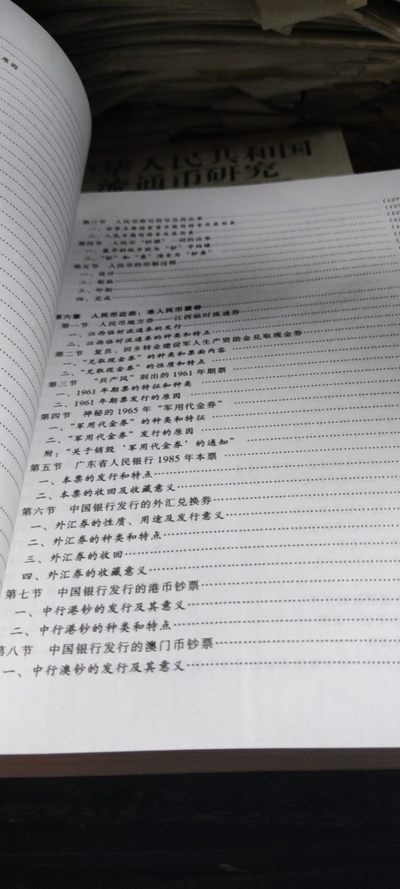 华人民共和国
流通币研究
第四节 人民币“钞票”
三、印刷
四、完成
第六章 人民币近亲:准人民币票券
第一节 人民币地方券——江西临时流通券
一、江西临时流通券的发行
二、江西临时流通券的种类和特点
第二节 复员、回乡转业建设军人生产资助金兑取现金券
一、“兑取现金券”的种类和票面内容
二、“兑取现金券”的性质和特点
第三节 “共产风”刮出的1961年期票
一、1961年期票的特征和种类
二、1961年期票发行的原因
第四节 神秘的1965年“军用代金券”
一、“军用代金券”的种类和特征
二、“军用代金券”发行的原因
附:“关于销毁‘军用代金券’的通知”
第五节 广东省人民银行1985年本票
一、本票的发行和特点
二、本票的收回及收藏意义
第六节 中国银行发行的外汇兑换券
一、外汇券的性质、用途及发行意义
二、外汇券的种类和特点
三、外汇券的收回
四、外汇券的收藏意义
第七节 中国银行发行的港币钞票
一、中行港钞的发行及其意义
二、中行港钞的种类和特点
第八节 中国银行发行的澳门币钞票
一、中行澳钞的发行及其意义